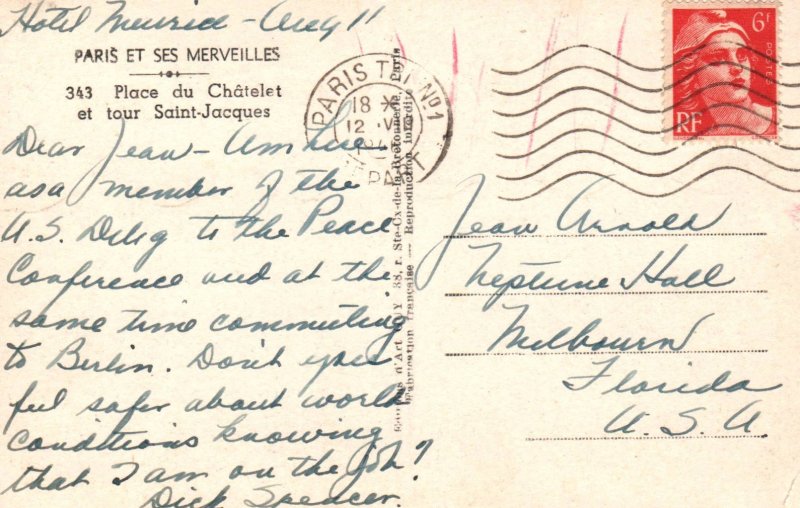 Hotel Meurice - Aug 11
PARIS ET SES MERVEILLES
343 Place du Châtelet
et tour Saint-Jacques
Dear Jean - Am here
as a member of the
U.S. Deleg to the Peace
Conference and at the
same time commuting
to Berlin. Don't you
feel safer about world
conditions knowing
that I am on the job?
Dick Spencer.
PARIS TRI Nº1
18
12
DÉPART
d'Art GUY 38, r. Ste-Cx-de-la-Bretonnerie, Paris
Fabrication française — Reproduction interdite
6F
POSTES
RF
Jean Arnold
Neptune Hall
Melbourn
Florida
U.S.A